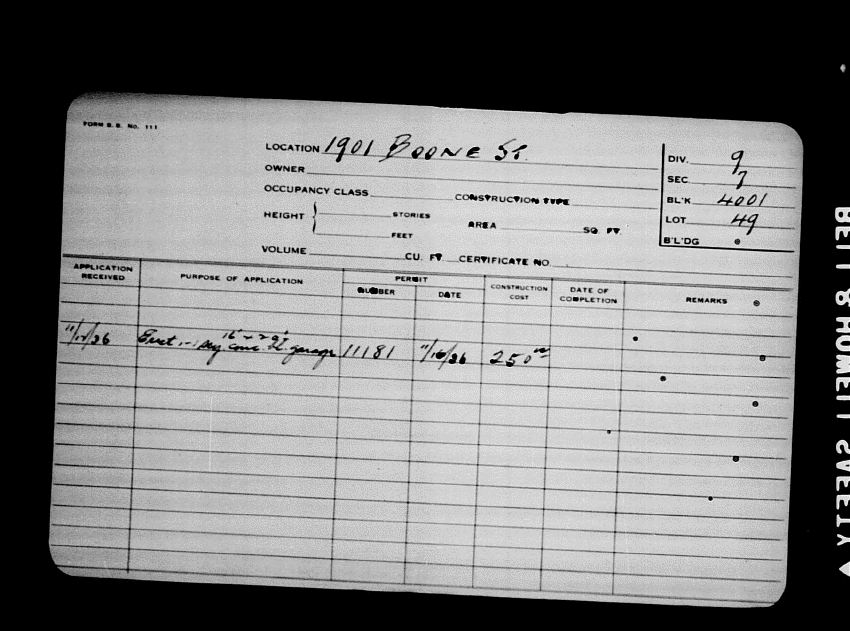 FORM B.B. No. 111
LOCATION 1901 BOONE St.
OWNER
OCCUPANCY CLASS CONSTRUCTION TYPE
HEIGHT STORIES AREA SQ. FT.
FEET
VOLUME CU. FT. CERTIFICATE NO.
DIV. 9
SEC 7
BL'K 4001
LOT 49
B'L'DG
APPLICATION RECEIVED PURPOSE OF APPLICATION PERMIT NUMBER DATE CONSTRUCTION COST DATE OF COMPLETION REMARKS
Erect 1-1 garage 11181 11/16/26 250
BELL & HOWELL SAFETY